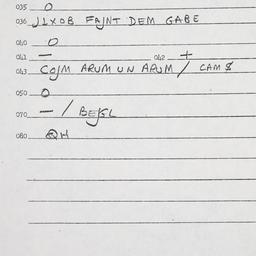 035 O
036 JLXOB FAJNT DEM GABE
040 O
041 — 042 +
043 COJM ARUM UN ARUM / CAM $
050 O
070 — /
080 QH